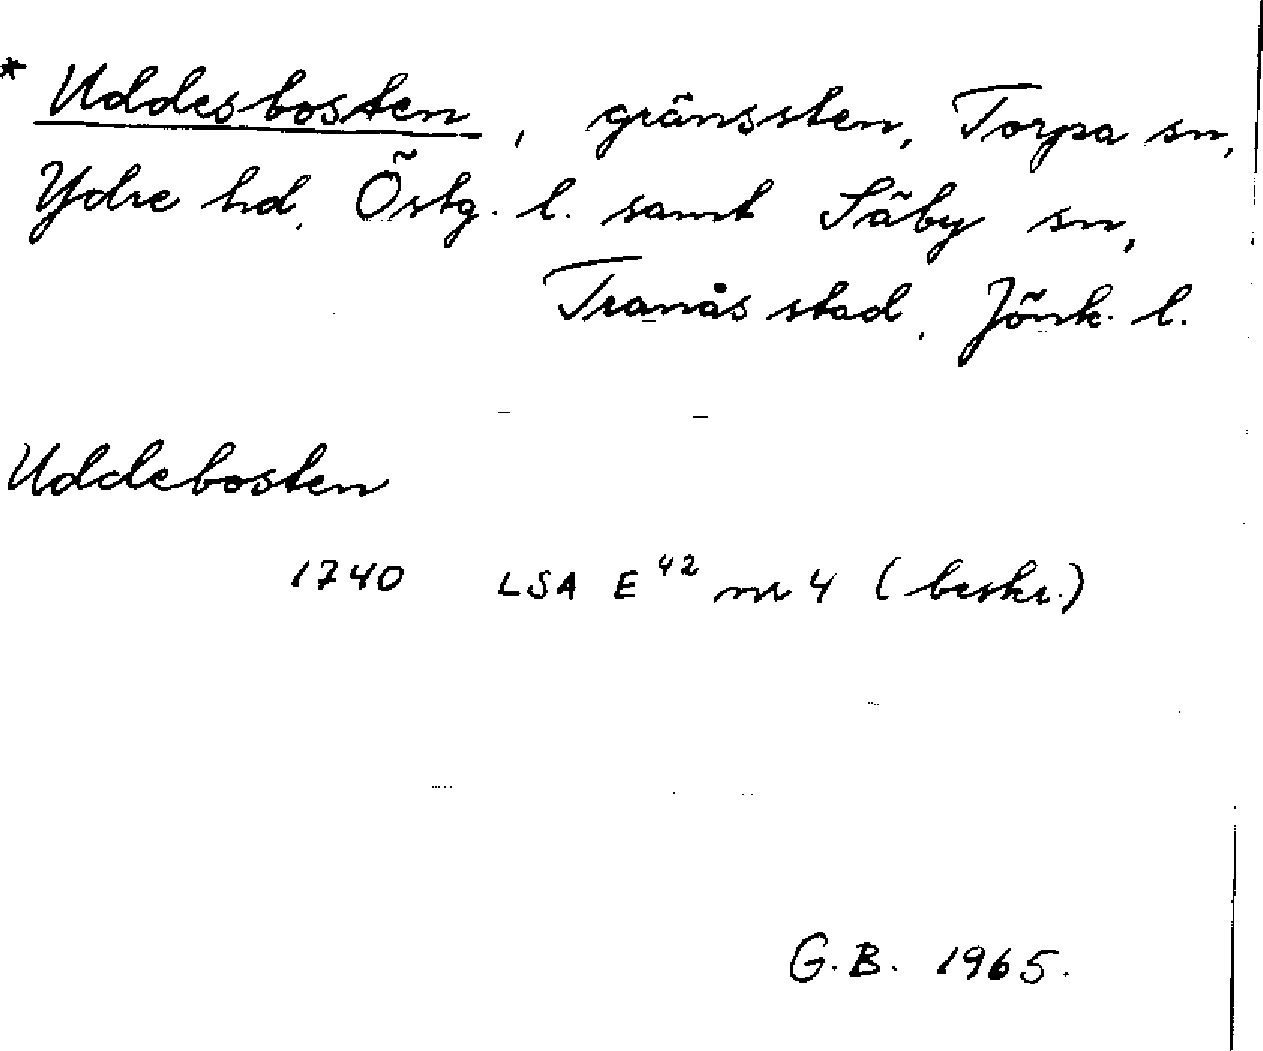 * Uddesbosten, gränssten, Torpa sn,
Ydre hd, Östg. l. samt Säby sn,
Tranås stad, Jönk. l.
Uddebosten
1740 LSA E 42 nr 4 (beskr.)
G.B. 1965.